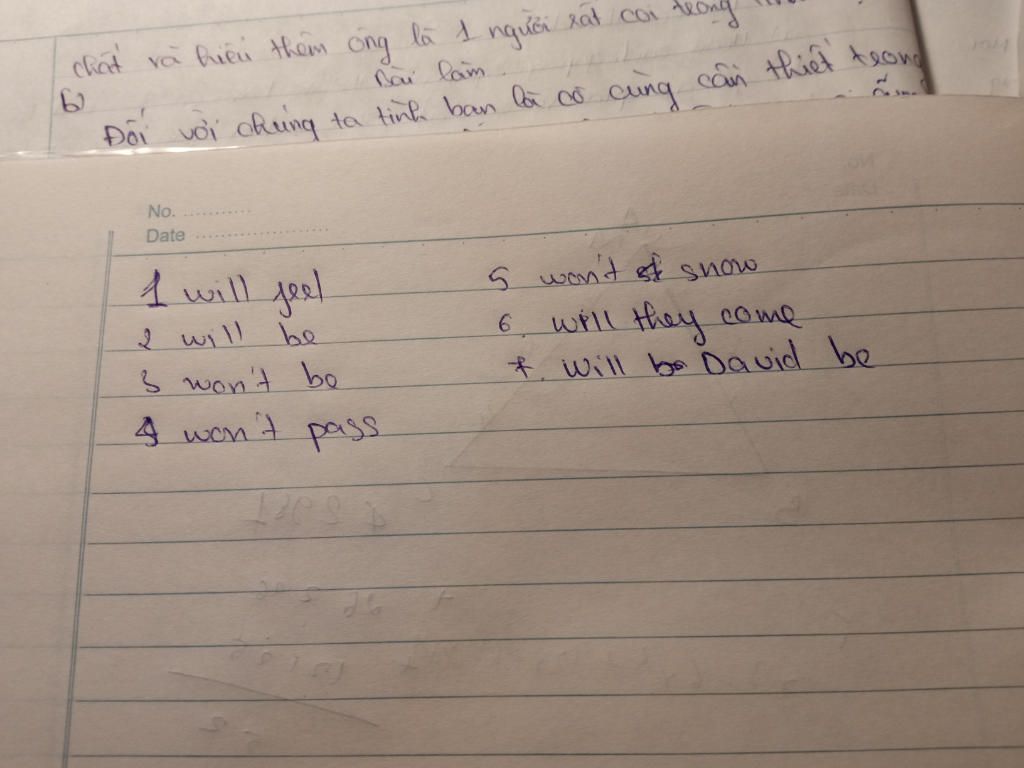 chất và hiểu thêm ông là 1 người rất coi trọng
Bài làm
b)
Đối với chúng ta tình bạn là cô cùng cần thiết trong
No. ............
Date ........................
1 will feel
2 will be
3 won't be
4 won't pass
5 won't snow
6. will they come
7. will David be